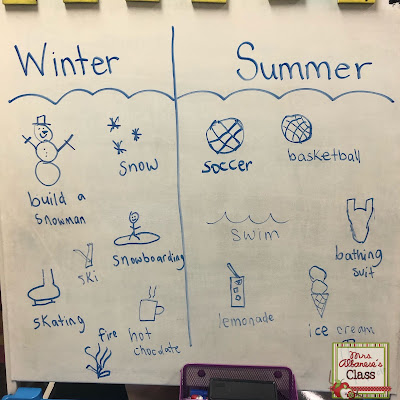 Winter
Summer
build a
snowman
snow
soccer
basketball
ski
snowboarding
swim
bathing
suit
skating
fire
hot
chocolate
lemonade
ice cream
Mrs.
Albanese's
Class